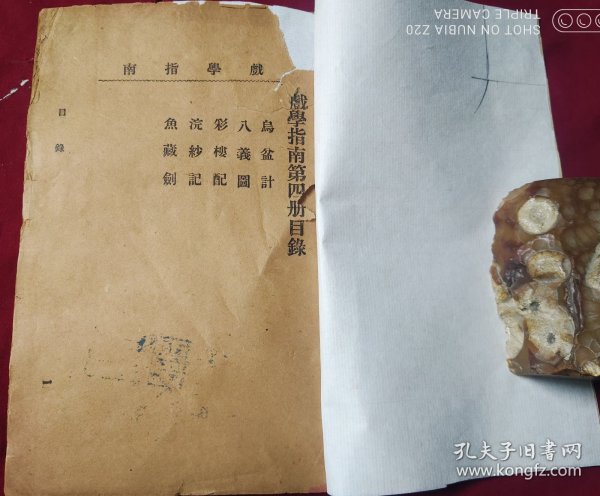 戲學指南
戲學指南第四册目錄
烏盆計
八義圖
彩樓配
浣紗記
魚藏劍
目錄
1
SHOT ON NUBIA Z20
TRIPLE CAMERA
孔夫子旧书网
www.kongfz.com